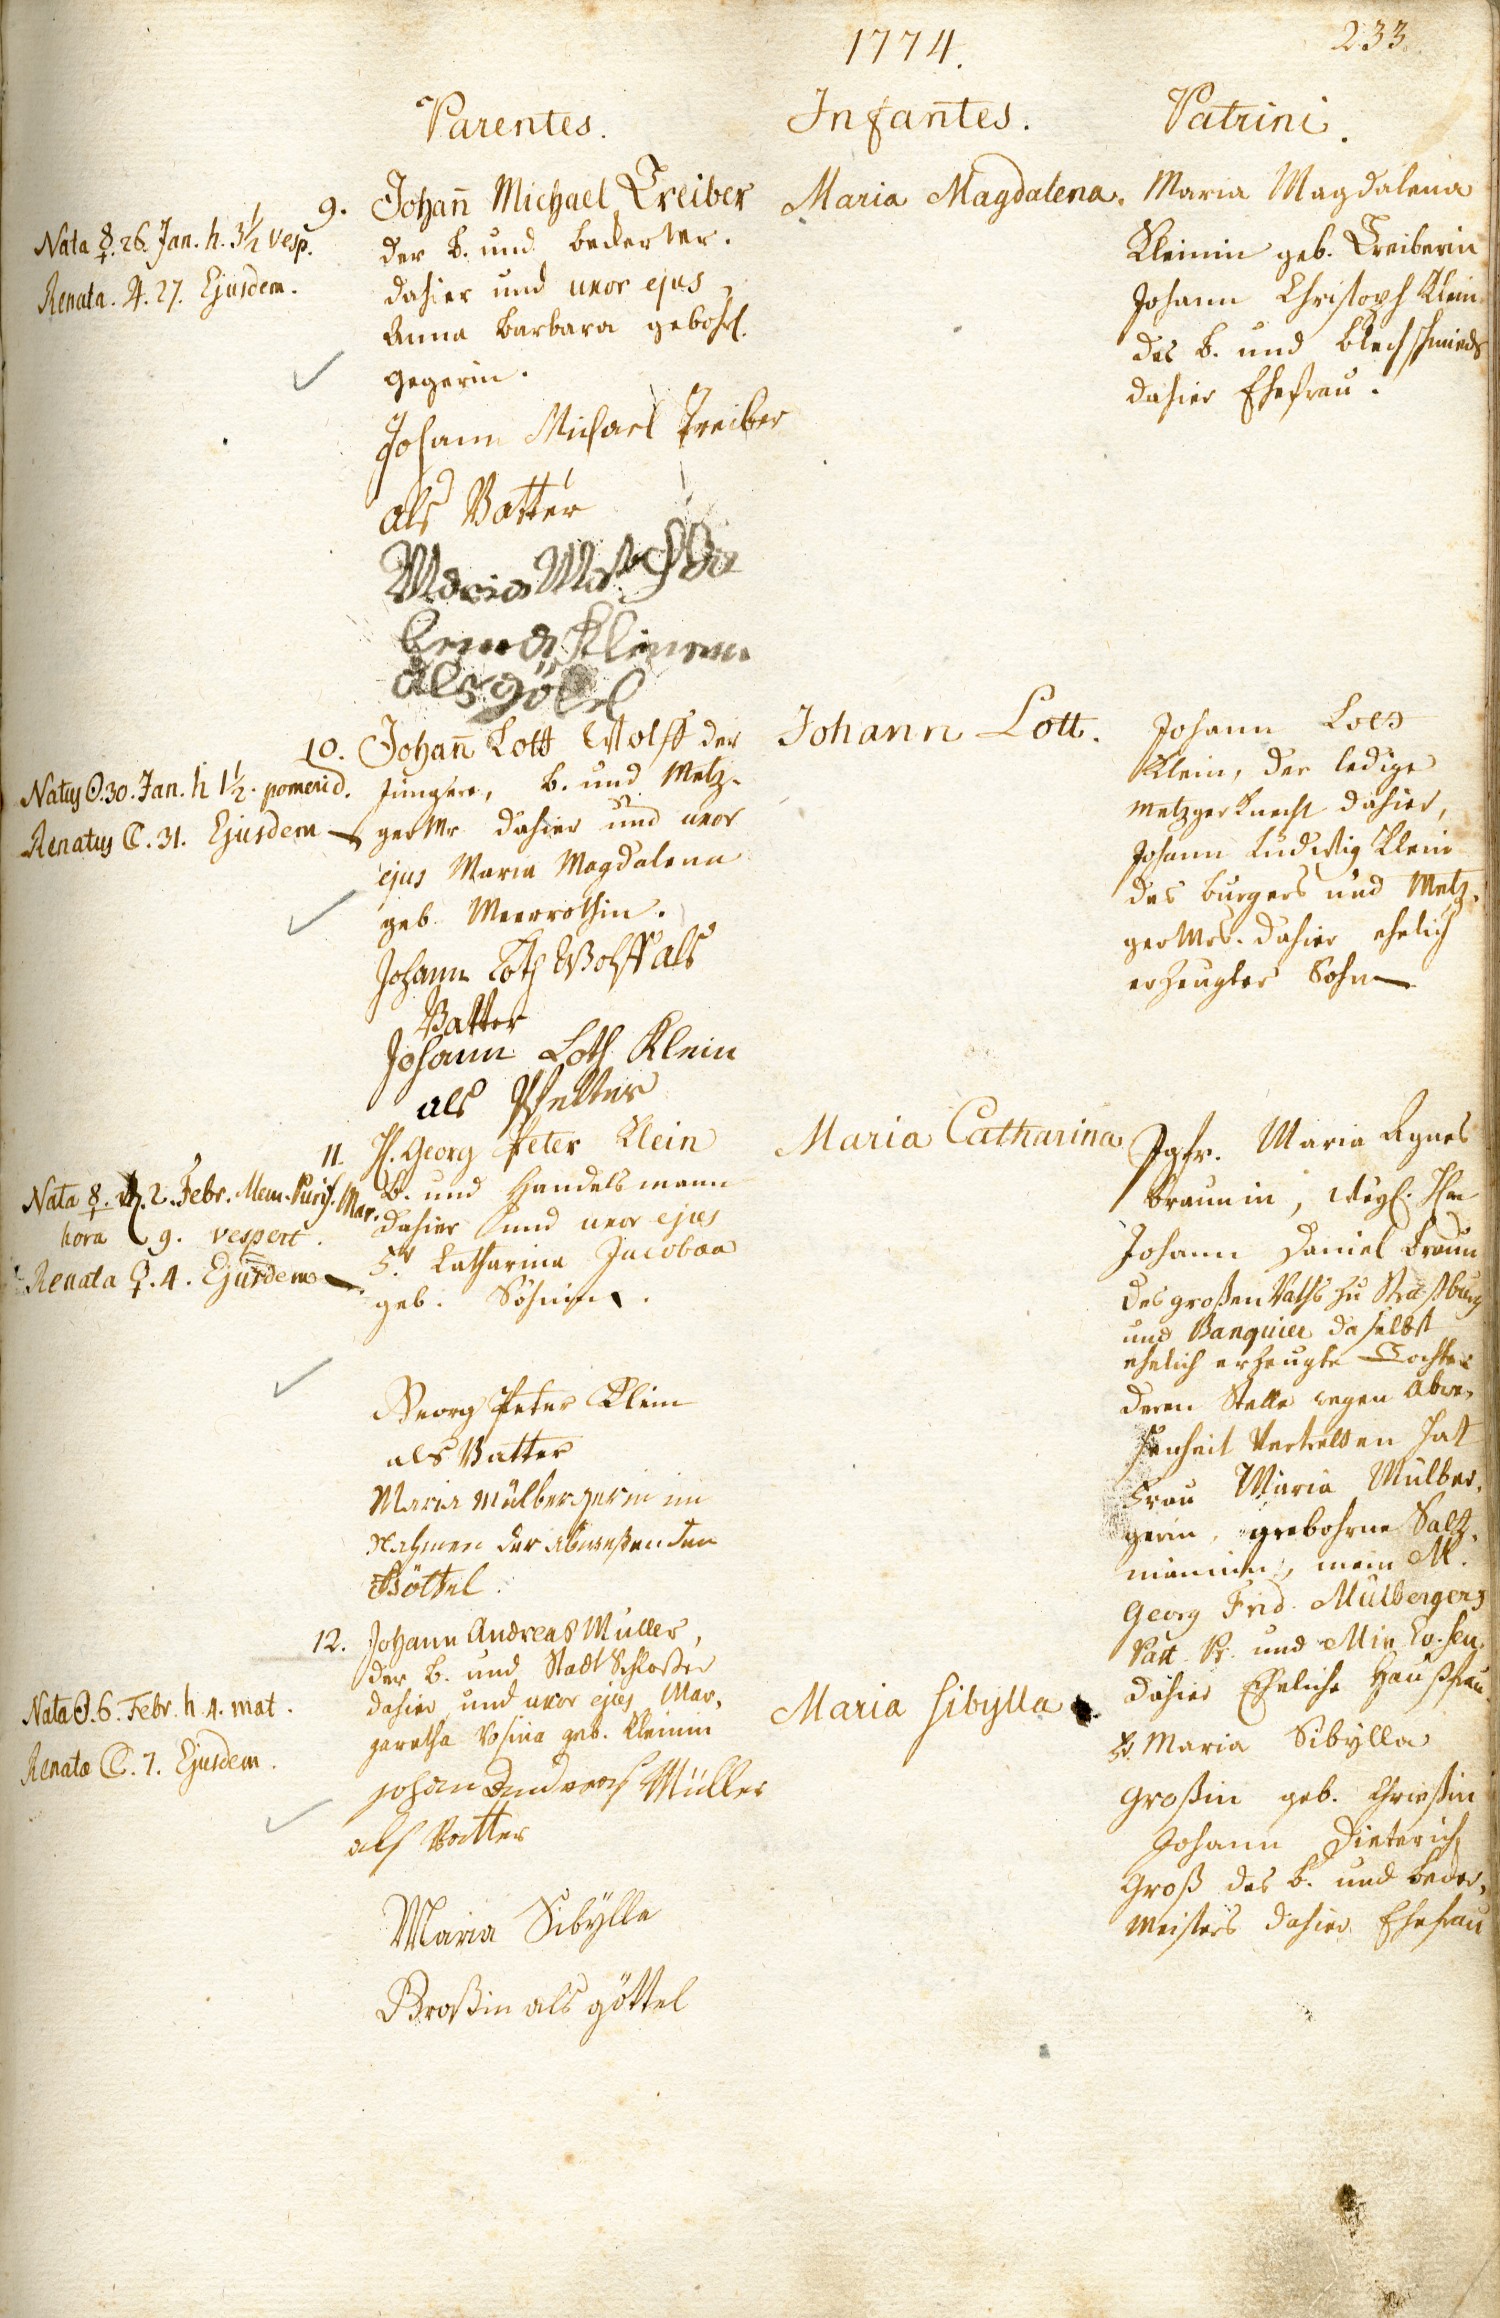 1774.
233.
Parentes.
Infantes.
Patrini.
9.
Nata ☿. 26. Jan. h. 3½ vesp.
Renata. ♃. 27. Ejusdem.
Johañ Michael Treiber
der B. und
dahier und uxor ejus
Anna Barbara gebohr.
Gegerin.
Johann Michael Treiber
als Vatter
Maria
als göttel
Maria Magdalena.
Maria Magdalena
Kleinin geb. Treiberin
Johann Christoph Klein
des B. und Blechschmieds
dahier Ehefrau.
10.
Natus ☉. 30. Jan. h 1½. pomerid.
Renatus ☾. 31. Ejusdem
Johañ Lott Wolff der
jüngere, B. und Metz-
ger Mr dahier und uxor
ejus Maria Magdalena
geb. Meerrothin.
Johann Loth Wolff als
Vatter
Johann Loth Klein
als Pfetter
Johann Lott.
Johann
Klein, der ledige
Metzgerknecht dahier,
Johann Ludwig Klein
des burgers und Metz-
ger Mrs. dahier ehelich
erzeugter Sohn
11.
Nata ☿. 2. Febr. Mem. Purif. Mar.
hora 9. vespert.
Renata ♀. 4. Ejusdem
H. Georg Peter Klein
B. und Handelsmann
dahier und uxor ejus
Catharina Jacobaa
geb. Söhnin.
Georg Peter Klein
als Vatter
Maria Mülbergerin im
Nahmen der abweßenden
Göttel
Maria Catharina
Jgfr. Maria Agnes
Braunin,
Johann Daniel Braun
des großen Raths zu Straßburg
und Banquier daselbst
ehelich erzeugte Tochter
deren Stelle wegen Abwe-
senheit vertretten hat
Frau Maria Mülber-
gerin, gebohrne Saltz-
männin, mein M.
Georg Frid. Mülbergers
und
dahier Eheliche Haußfrau.
12.
Nata ☉. 6. Febr. h. 4. mat.
Renata ☾. 7. Ejusdem.
Johann Andreas Müller,
der B. und Stadt Schloßer
dahier und uxor ejus Mar-
garetha Rosina geb. Kleinin
Johan Andreas Müller
als Vatter
Maria Sibylla
Großin als göttel
Maria Sibylla
Fr. Maria Sibylla
Großin geb.
Johann Dieterich
Groß des B. und Beder-
meisters dahier Ehefrau